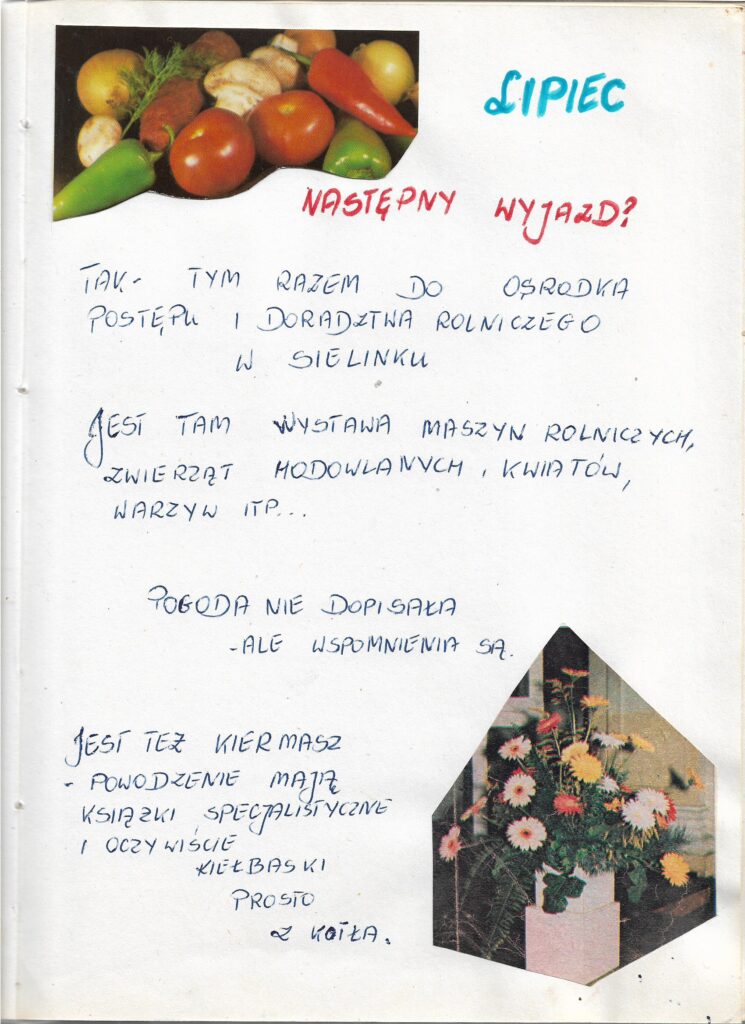 LIPIEC
NASTĘPNY WYJAZD?
TAK- TYM RAZEM DO OŚRODKA
POSTĘPU I DORADZTWA ROLNICZEGO
W SIELINKU
JEST TAM WYSTAWA MASZYN ROLNICZYCH,
ZWIERZĄT HODOWLANYCH, KWIATÓW,
WARZYW ITP...
POGODA NIE DOPISAŁA
-ALE WSPOMNIENIA SĄ.
JEST TEŻ KIERMASZ
- POWODZENIE MAJĄ
KSIĄŻKI SPECJALISTYCZNE
I OCZYWIŚCIE
KIEŁBASKI
PROSTO
Z KOTŁA.